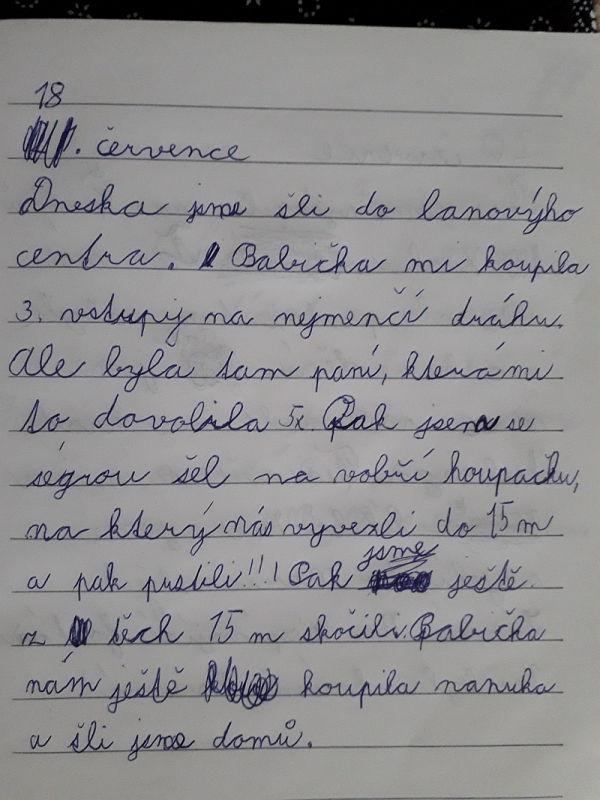 18
. července
Dneska jsme šli do lanovýho
centra. Babička mi koupila
3. vstupy na nejmenčí dráhu.
Ale byla tam paní, která mi
to dovolila 5x. Pak jsem se
ségrou šel na vobří houpačku,
na který nás vyvezli do 15 m
a pak pustili!!! Pak jsme ještě
z těch 15 m skočili. Babička
nám ještě koupila nanuka
a šli jsme domů.